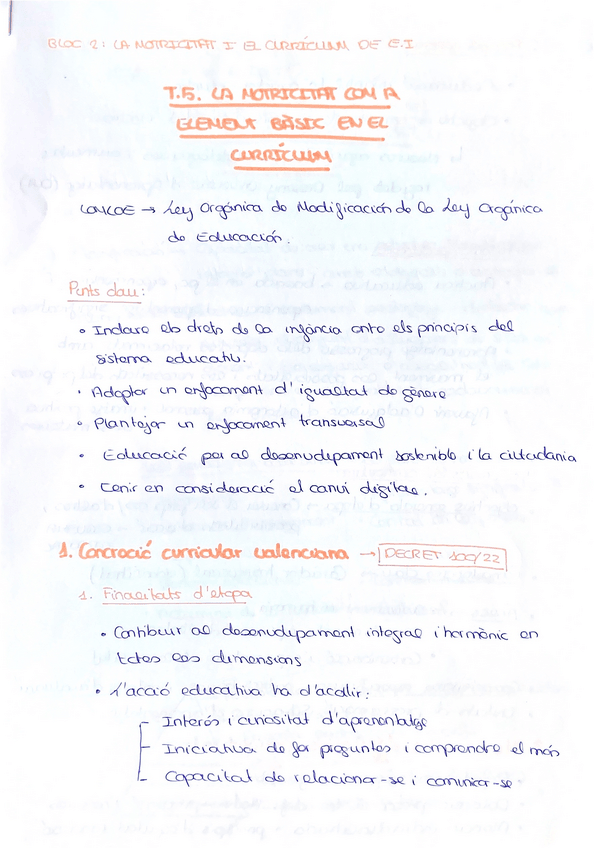 BLOC 2: LA MOTRICITAT I EL CURRÍCULUM DE E.I
T.5. LA MOTRICITAT COM A
ELEMENT BÀSIC EN EL
CURRÍCULUM
LOMLOE → Ley Orgánica de Modificación de la Ley Orgánica
de Educación.
Punts clau:
• Incloure els drets de la infància entre els principis del
sistema educatiu.
• Adoptar un enfocament d'igualtat de gènere
• Plantejar un enfocament transversal
• Educació per al desenvolupament sostenible i la ciutadania
• Tenir en consideració el canvi digital.
1. Concreció curricular valenciana → DECRET 100/22
1. Finalitats d'etapa
• Contribuir al desenvolupament integral i harmònic en
totes les dimensions
• L'acció educativa ha d'acollir:
- Interés i curiositat d'aprenentatge
- Iniciativa de fer preguntes i comprendre el món
- Capacitat de relacionar-se i comunicar-se